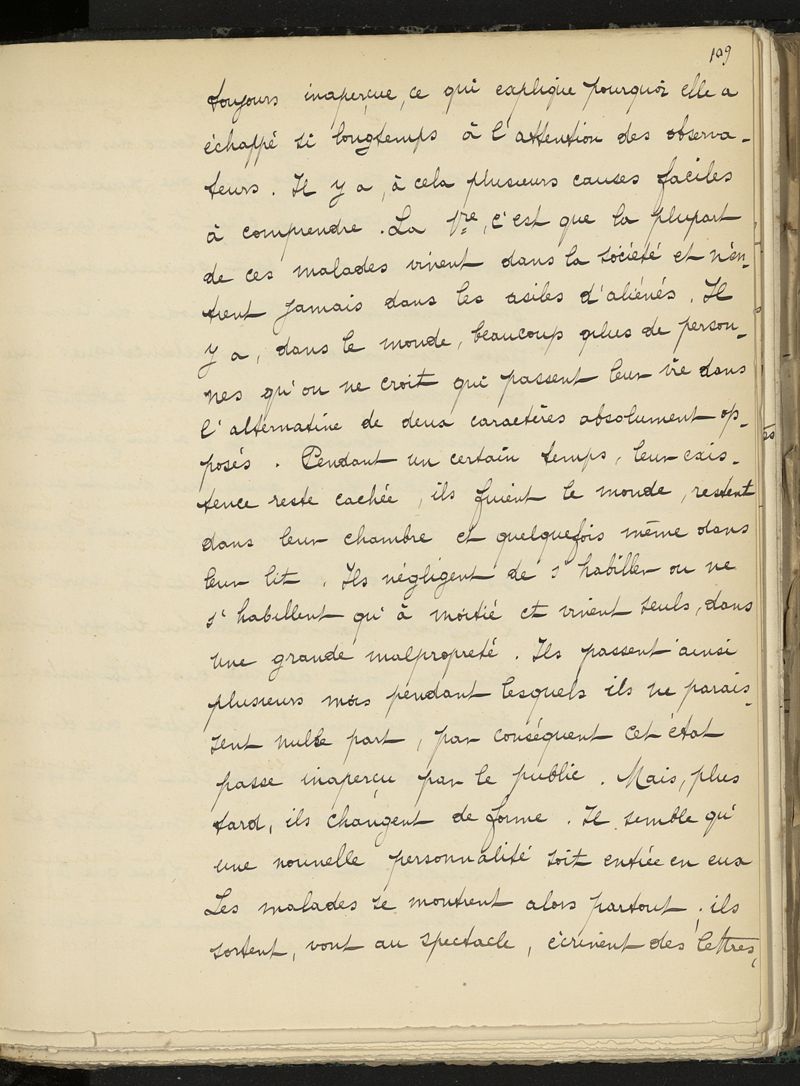 199
toujours inaperçue, ce qui explique pourquoi elle a
échappé si longtemps à l'attention des observa-
teurs. Il y a, à cela plusieurs causes faciles
à comprendre. La 1re, c'est que la plupart
de ces malades vivent dans la société et n'en-
trent jamais dans les asiles d'aliénés. Il
y a, dans le monde, beaucoup plus de person-
nes qu'on ne croit qui passent leur vie dans
l'alternative de deux caractères absolument op-
posés. Pendant un certain temps, leur exis-
tence reste cachée, ils fuient le monde, restent
dans leur chambre et quelquefois même dans
leur lit. Ils négligent de s'habiller ou ne
s'habillent qu'à moitié et vivent seuls, dans
une grande malpropreté. Ils passent ainsi
plusieurs mois pendant lesquels ils ne parais-
sent nulle part, par conséquent cet état
passe inaperçu par le public. Mais, plus
tard, ils changent de forme. Il semble qu'
une nouvelle personnalité soit entrée en eux
Les malades se montrent alors partout; ils
sortent, vont au spectacle, écrivent des lettres,